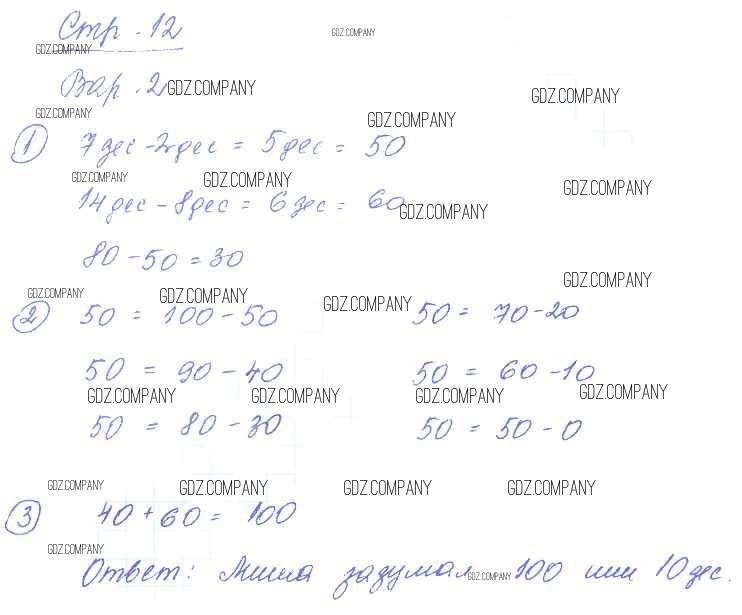 Стр. 12
GDZ.COMPANY
GDZ.COMPANY
Вар. 2 GDZ.COMPANY
GDZ.COMPANY
GDZ.COMPANY
GDZ.COMPANY
1 7 дес - 2 дес = 5 дес = 50
GDZ.COMPANY GDZ.COMPANY GDZ.COMPANY
14 дес - 8 дес = 6 дес = 60
GDZ.COMPANY
80 - 50 = 30
GDZ.COMPANY
GDZ.COMPANY GDZ.COMPANY GDZ.COMPANY
2 50 = 100 - 50 50 = 70 - 20
50 = 90 - 40 50 = 60 - 10
GDZ.COMPANY GDZ.COMPANY GDZ.COMPANY GDZ.COMPANY
50 = 80 - 30 50 = 50 - 0
GDZ.COMPANY GDZ.COMPANY GDZ.COMPANY GDZ.COMPANY
3 40 + 60 = 100
GDZ.COMPANY
Ответ: Миша задумал 100 или 10 дес.
GDZ.COMPANY